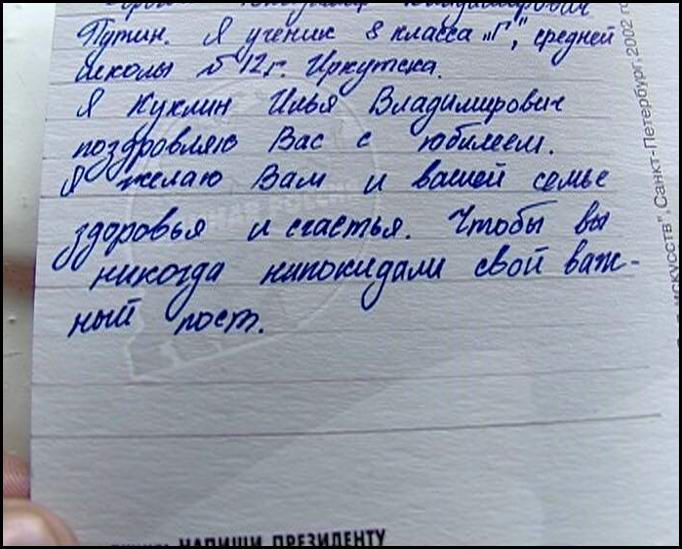 Владимир Владимирович
Путин. Я ученик 8 класса "Г", средней
школы №12 г. Иркутска.
Я Куклин Илья Владимирович
поздровляю Вас с юбилеем.
Я желаю Вам и вашей семье
здоровья и счастья. Чтобы вы
никогда нипокидали свой важ-
ный пост.
НАПИШИ ПРЕЗИДЕНТУ
искусств", Санкт-Петербург, 2002 го